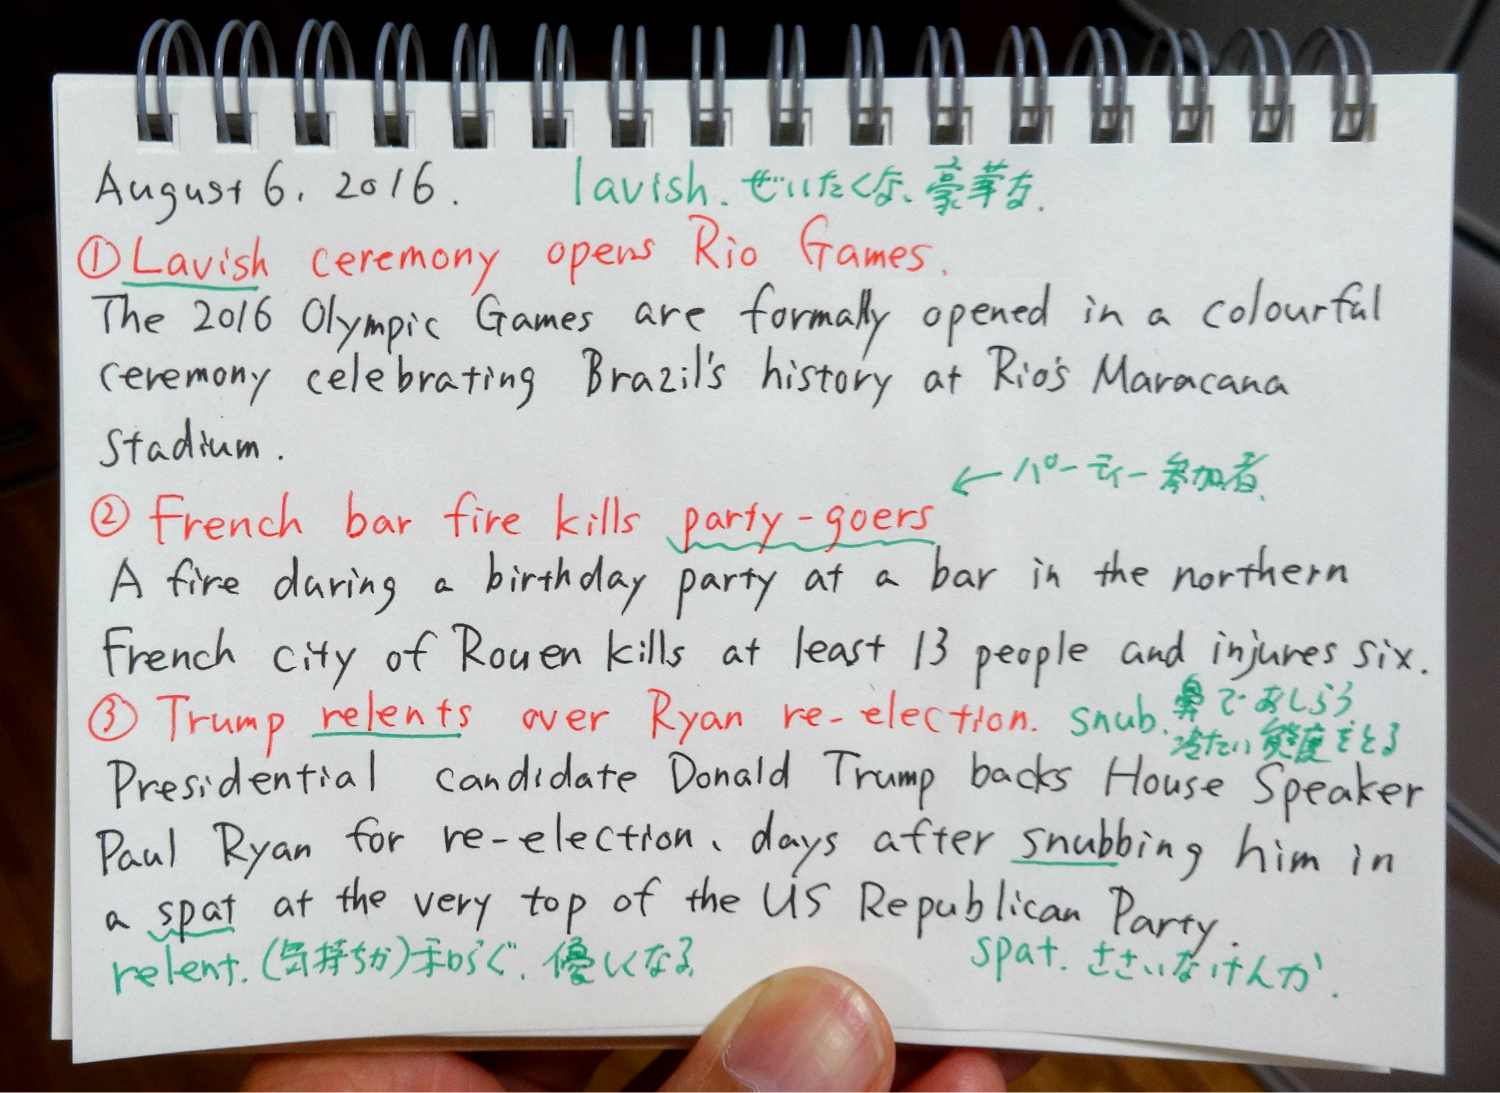 August 6, 2016. lavish. ぜいたくな、豪華な.
①Lavish ceremony opens Rio Games.
The 2016 Olympic Games are formally opened in a colourful
ceremony celebrating Brazil's history at Rio's Maracana
Stadium.
← パーティー参加者.
② French bar fire kills party-goers
A fire during a birthday party at a bar in the northern
French city of Rouen kills at least 13 people and injures six.
③ Trump relents over Ryan re-election. snub. 鼻であしらう
冷たい態度をとる
Presidential candidate Donald Trump backs House Speaker
Paul Ryan for re-election、days after snubbing him in
a spat at the very top of the US Republican Party.
relent. (気持ちが)和らぐ. 優しくなる spat. ささいなけんか.